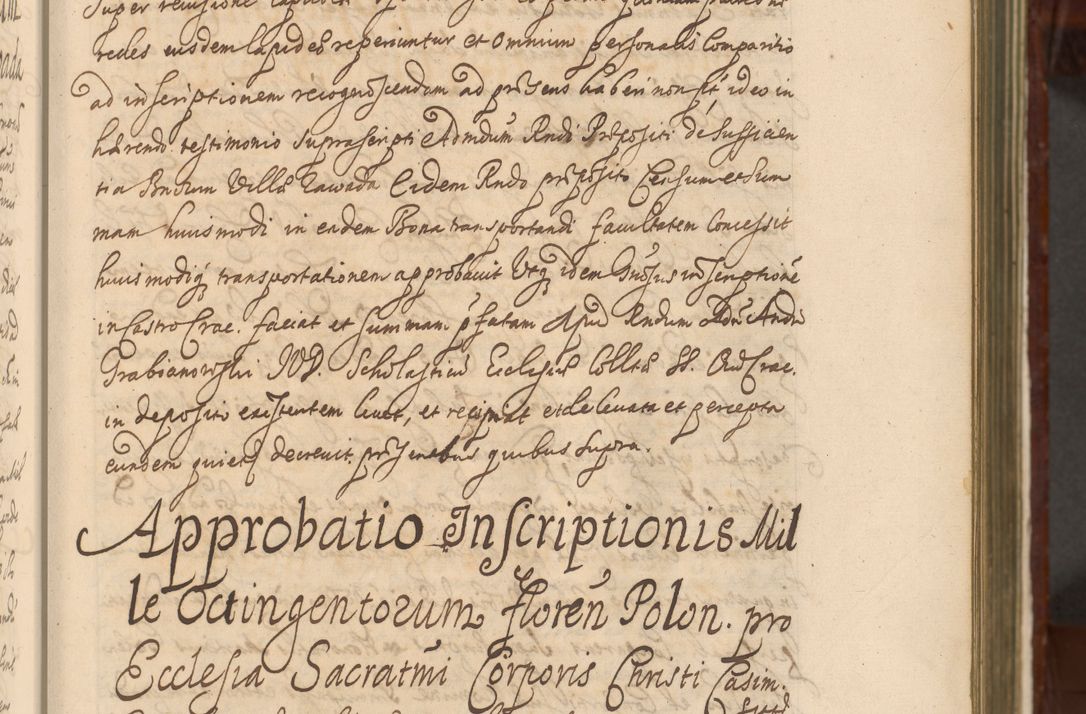 redes eiusdem lapides reperiuntur et omnium personalis Comparitio
ad inscriptionem recognoscendam ad pr̃sens haberi non sit ideo in
hærendo testimonio suprascripti Admdum Rndi Præpositi de sufficien
tia Bnorum Villæ Zawada Eidem Rndo præposito Censum et Sum
mam huiusmodi in eadem Bona transportandi facultatem Concessit
huiusmodiq; transportationem approbavit Utq; idem Gnosus inscriptionẽ
in Castro Crac. faciat et summam p̃fatam apud Rndum Adm̃ Andr
Grabianowski IVD. Scholasticũ Ecclesiæ Colltæ SS. Oud Crac.
in deposito existentem levet, et recipiat et de levata et percepta
eundem quietet decrevit. præsentibus quibus supra.
Approbatio Inscriptionis Mil
le Octingentorum floreñ Polon. pro
Ecclesia Sacratm̃i Corporis Christi Casim.